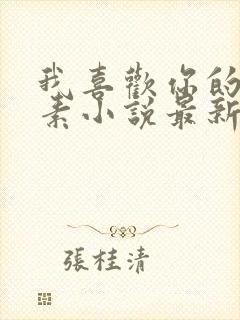 我喜歡你的
素小說最新
張桂清